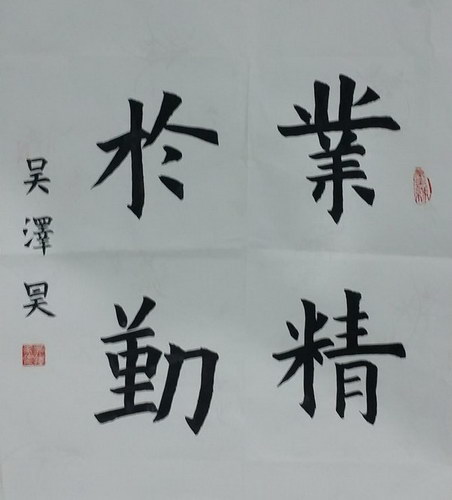 業精
於勤
吳澤昊